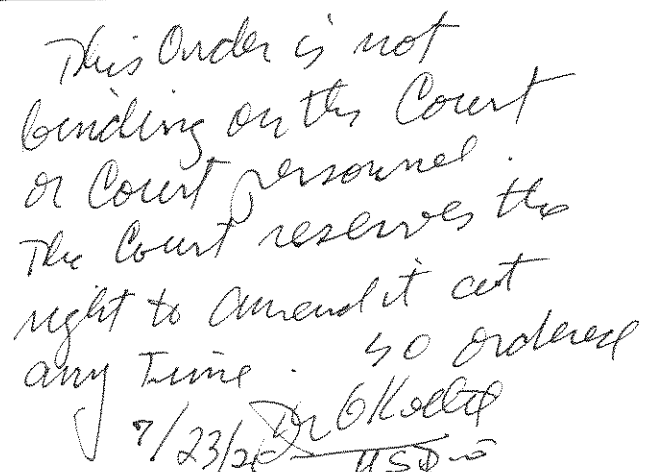 This Order is not
binding on the Court
or Court personnel.
The Court reserves the
right to amend it at
any time. So ordered
7/23/20
USDJ